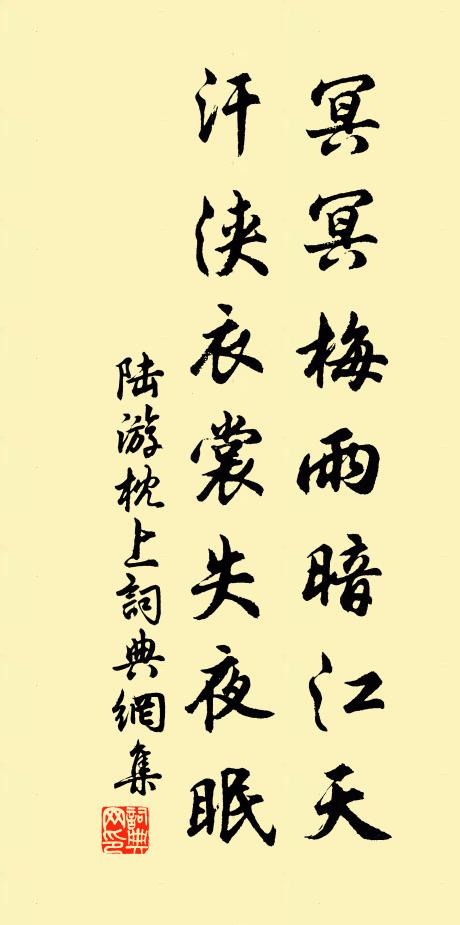 冥冥梅雨暗江天
汗浹衣裳失夜眠
陆游枕上詞典網集
詞典網印